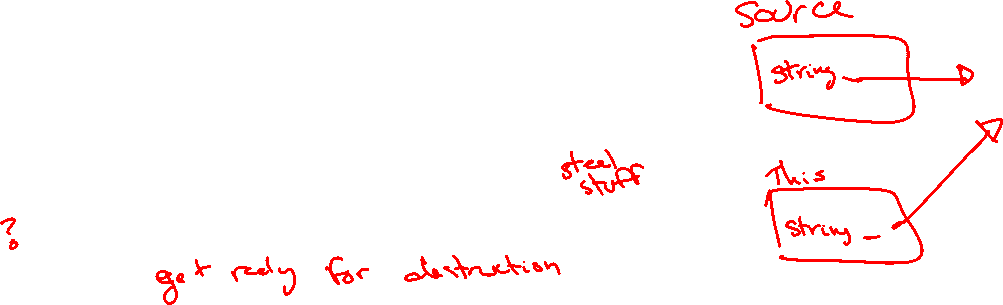 Source
string
steel
stuff
This
string
?
get redy for destruction